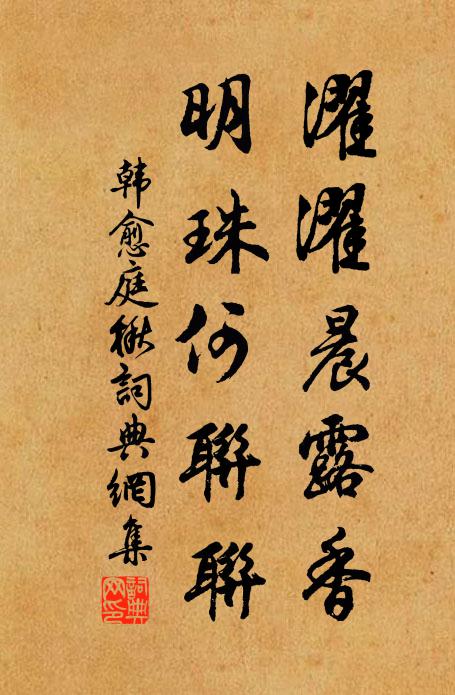 濯濯晨露香
明珠何聯聯
韩愈庭楸詞典網集
詞典网印